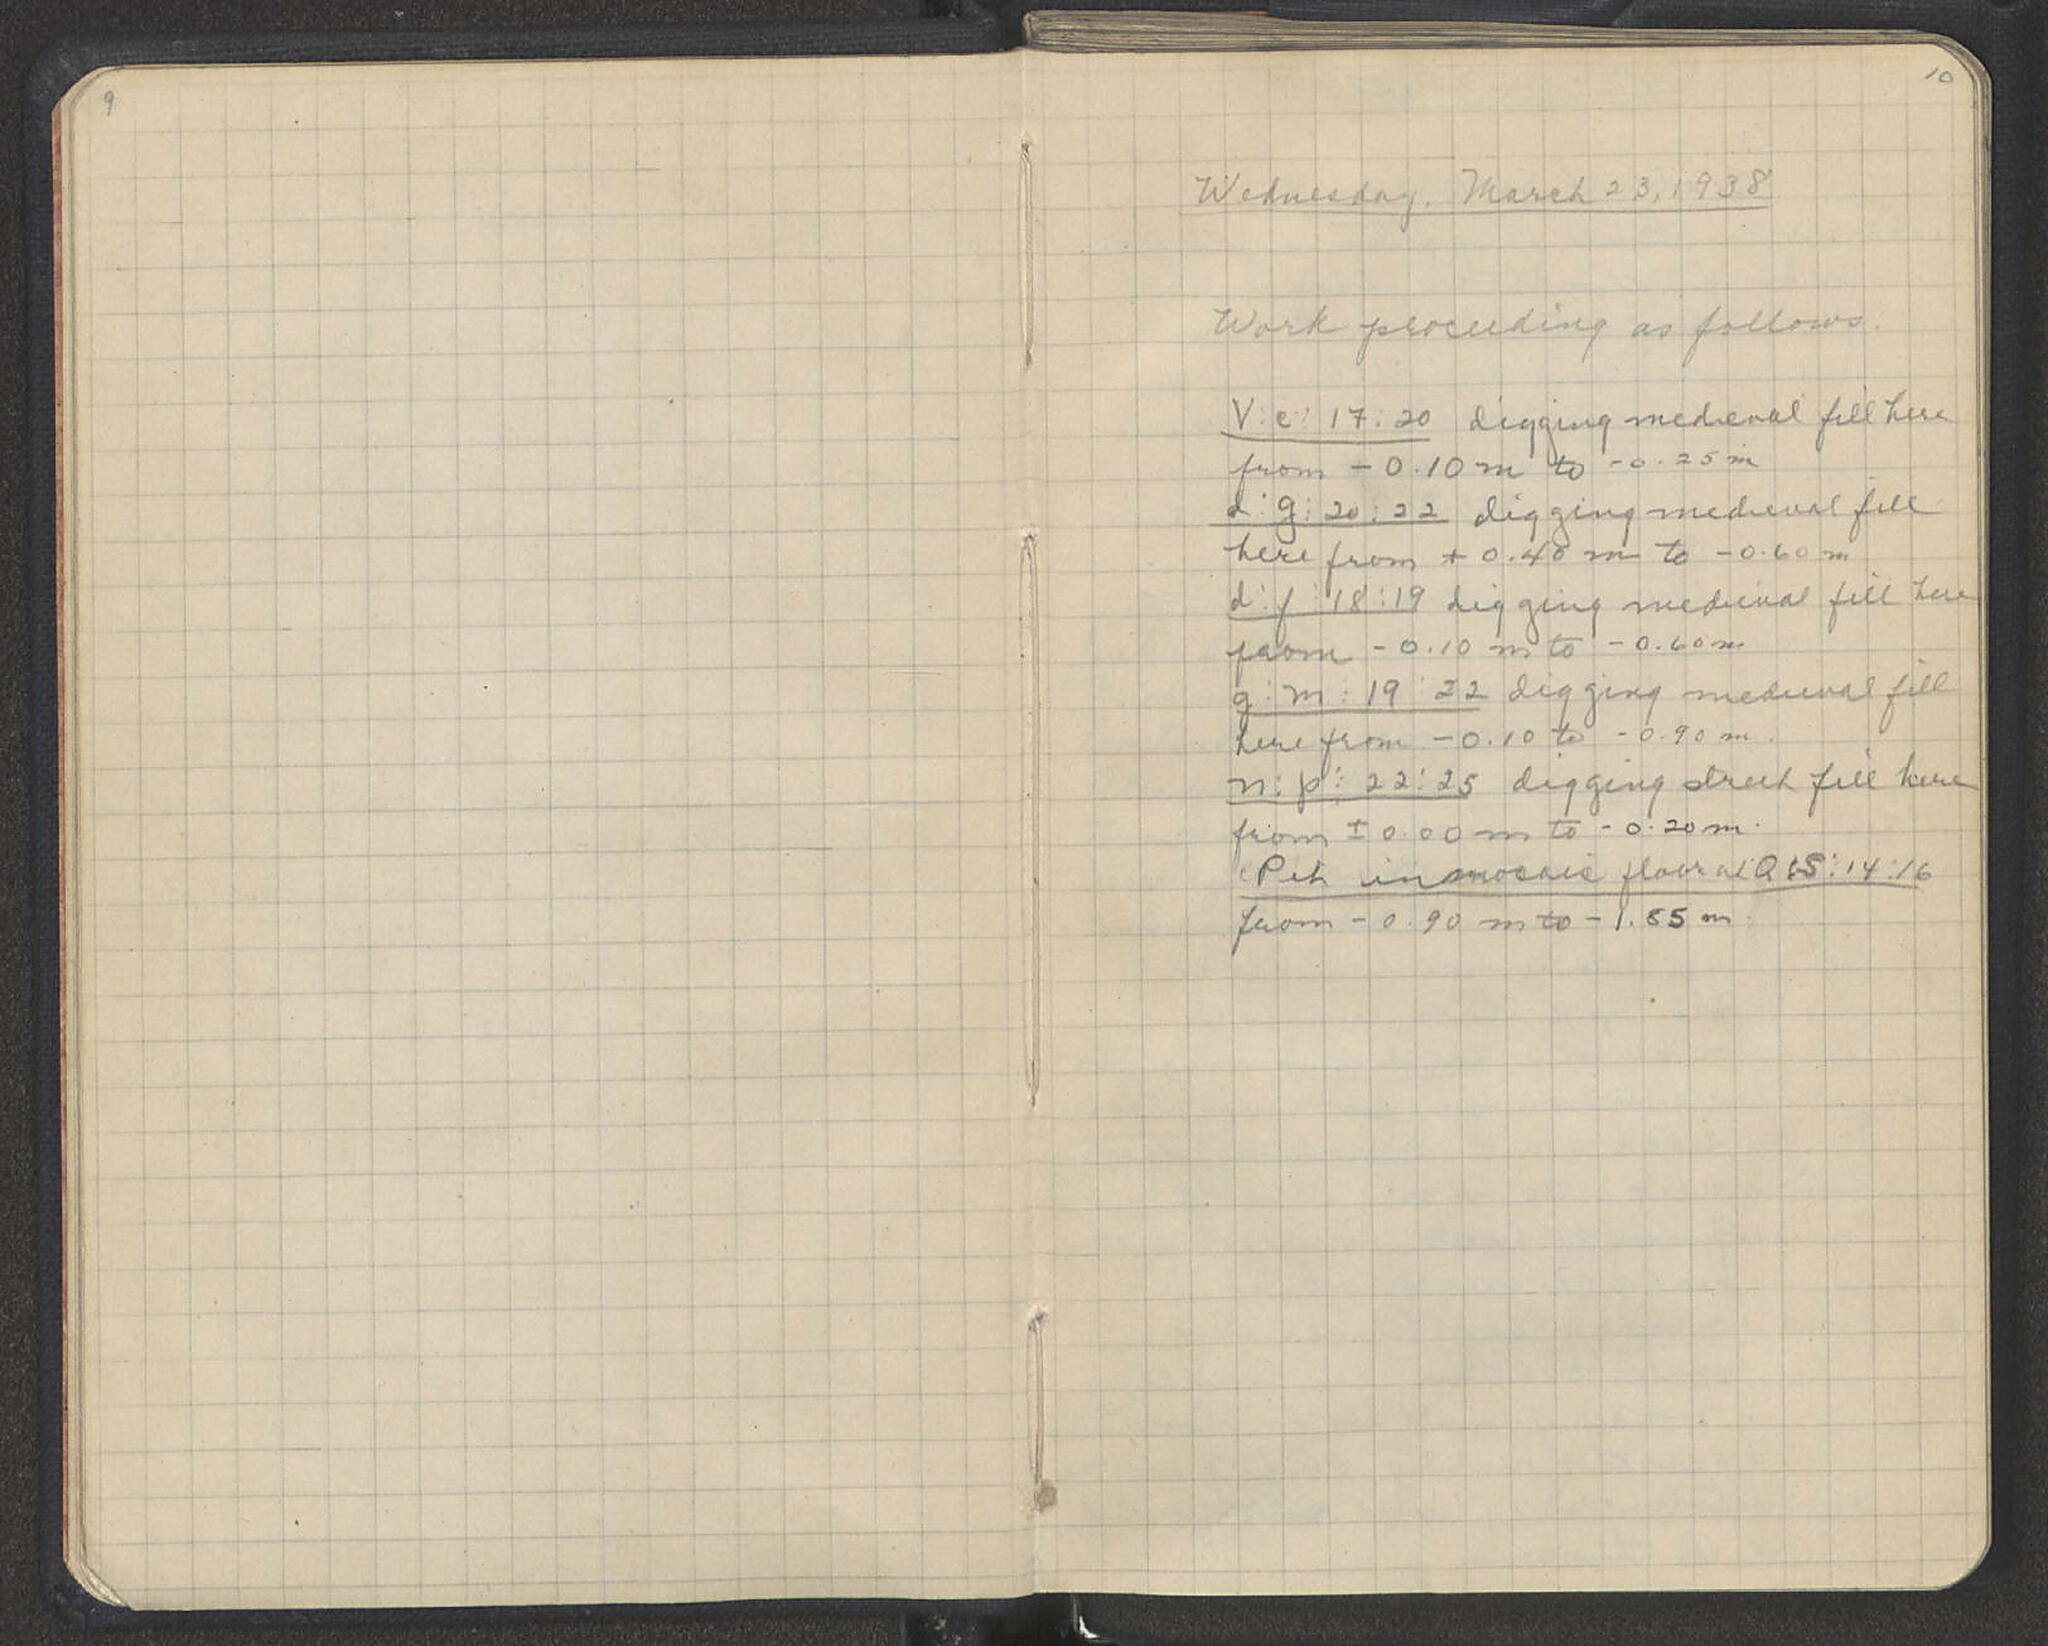 9
10
Wednesday. March 23, 1938
Work proceeding as follows.
V:c: 17:20 digging medieval fill here
from -0.10 m to -0.25 m
d:g:20:22 digging medieval fill
here from +0.40 m to -0.60 m
d:f:18:19 digging medieval fill here
from -0.10 m to -0.60 m
g:m:19:22 digging medieval fill
here from -0.10 to -0.90 m.
n:p:22:25 digging street fill here
from ±0.00 m to -0.20 m.
Pit in mosaic floor at :14:16
from -0.90 m to -1.85 m.